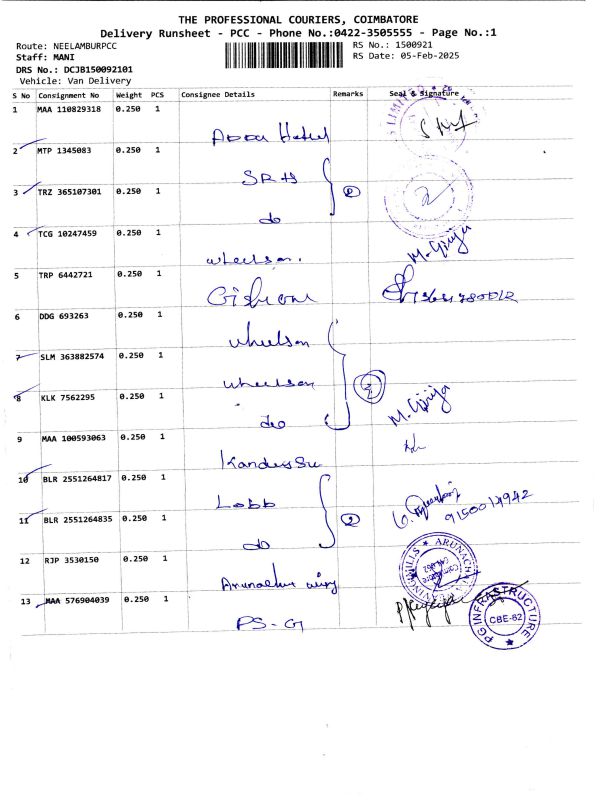 THE PROFESSIONAL COURIERS, COIMBATORE
Delivery Runsheet - PCC - Phone No.:0422-3505555 - Page No.:1
Route: NEELAMBURPCC
RS No.: 1500921
Staff: MANI
RS Date: 05-Feb-2025
DRS No.: DCJB150092101
Vehicle: Van Delivery
S No Consignment No Weight PCS Consignee Details Remarks Seal & Signature
1 MAA 110829318 0.250 1
2 MTP 1345083 0.250 1
SRH
3 TRZ 365107301 0.250 1
2
do
4 TCG 10247459 0.250 1
wheelson.
M. Girija
5 TRP 6442721 0.250 1
6 DDG 693263 0.250 1
wheelson
7 SLM 363882574 0.250 1
wheelson
8 KLK 7562295 0.250 1
do
M. Girija
9 MAA 100593063 0.250 1
10 BLR 2551264817 0.250 1
Lobb
9150014942
11 BLR 2551264835 0.250 1
2
do
12 RJP 3530150 0.250 1
13 MAA 576904039 0.250 1
PS-G
PG INFRASTRUCTURE
CBE-62